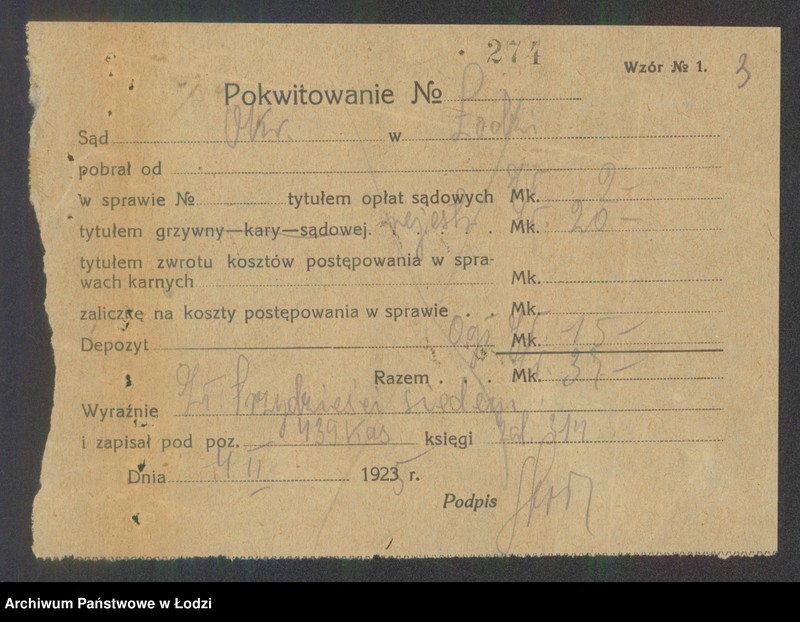 274
Wzór № 1. 3
Pokwitowanie №
Sąd Okr. w Łodzi
pobrał od
w sprawie № tytułem opłat sądowych Mk. Zł. 2 —
tytułem grzywny—kary—sądowej. rejestr . Mk. Zł. 20 —
tytułem zwrotu kosztów postępowania w spra-
wach karnych Mk.
zaliczkę na koszty postępowania w sprawie . . Mk.
Depozyt Ogł. Mk. Zł. 15 —
Razem . . . Mk. Zł. 37 —
Wyraźnie Zł. trzydzieści siedem
i zapisał pod poz. 439 Kas księgi 314
Dnia 4 II 1923 5 r.
Podpis
Archiwum Państwowe w Łodzi